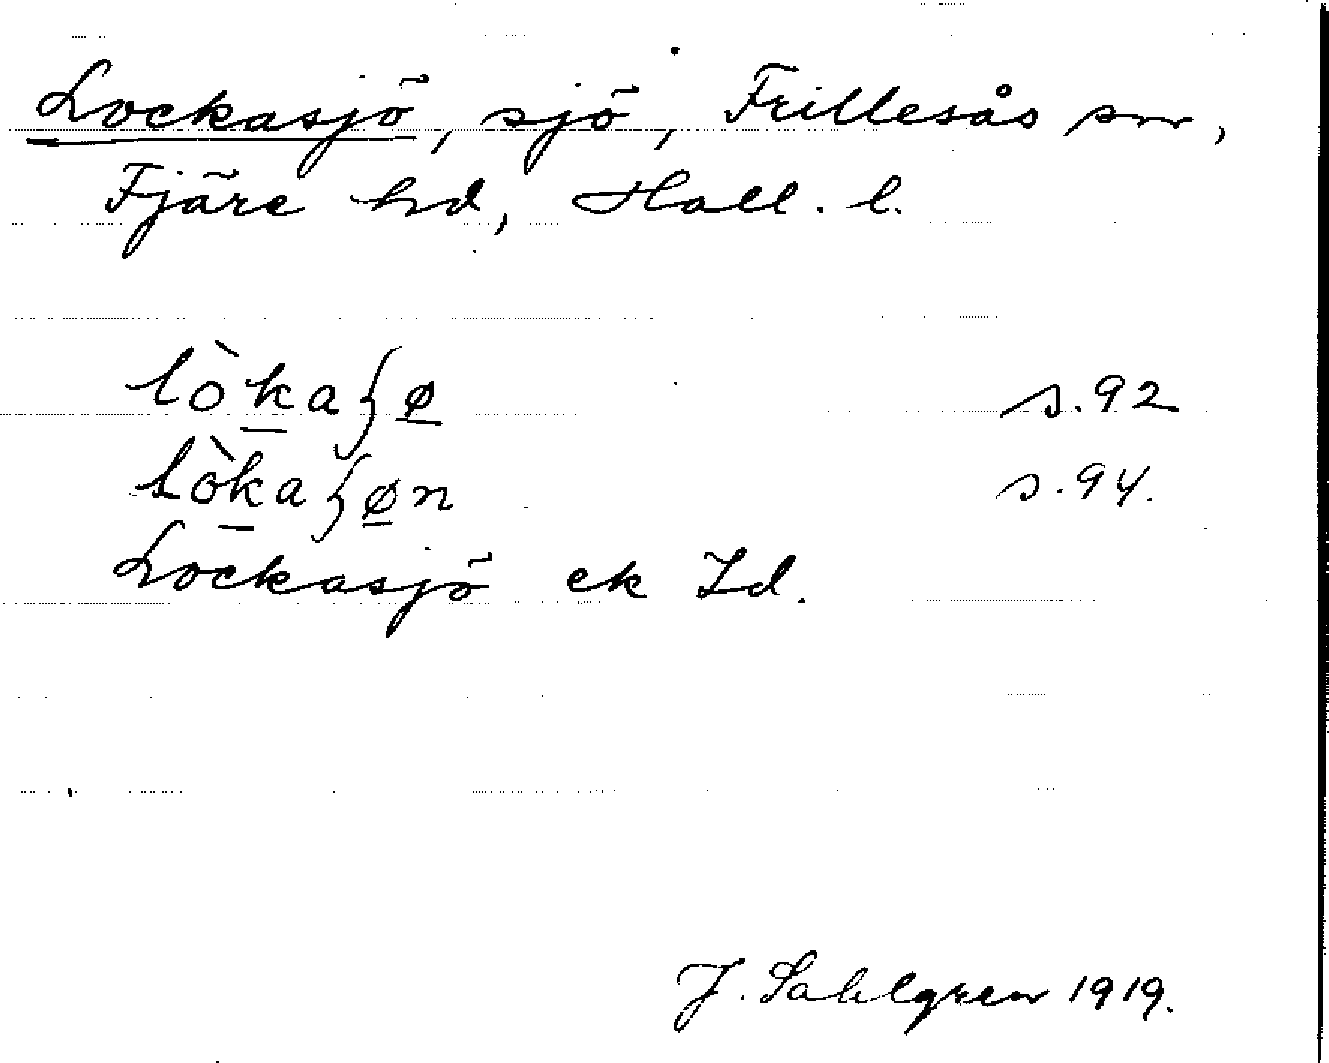 Lockasjö, sjö, Frillesås sn,
Fjäre hd, Hall. l.
lò̀kaʃø s. 92
lò̀kaʃøn s. 94.
Lockasjö ek Id.
J. Sahlgren 1919.